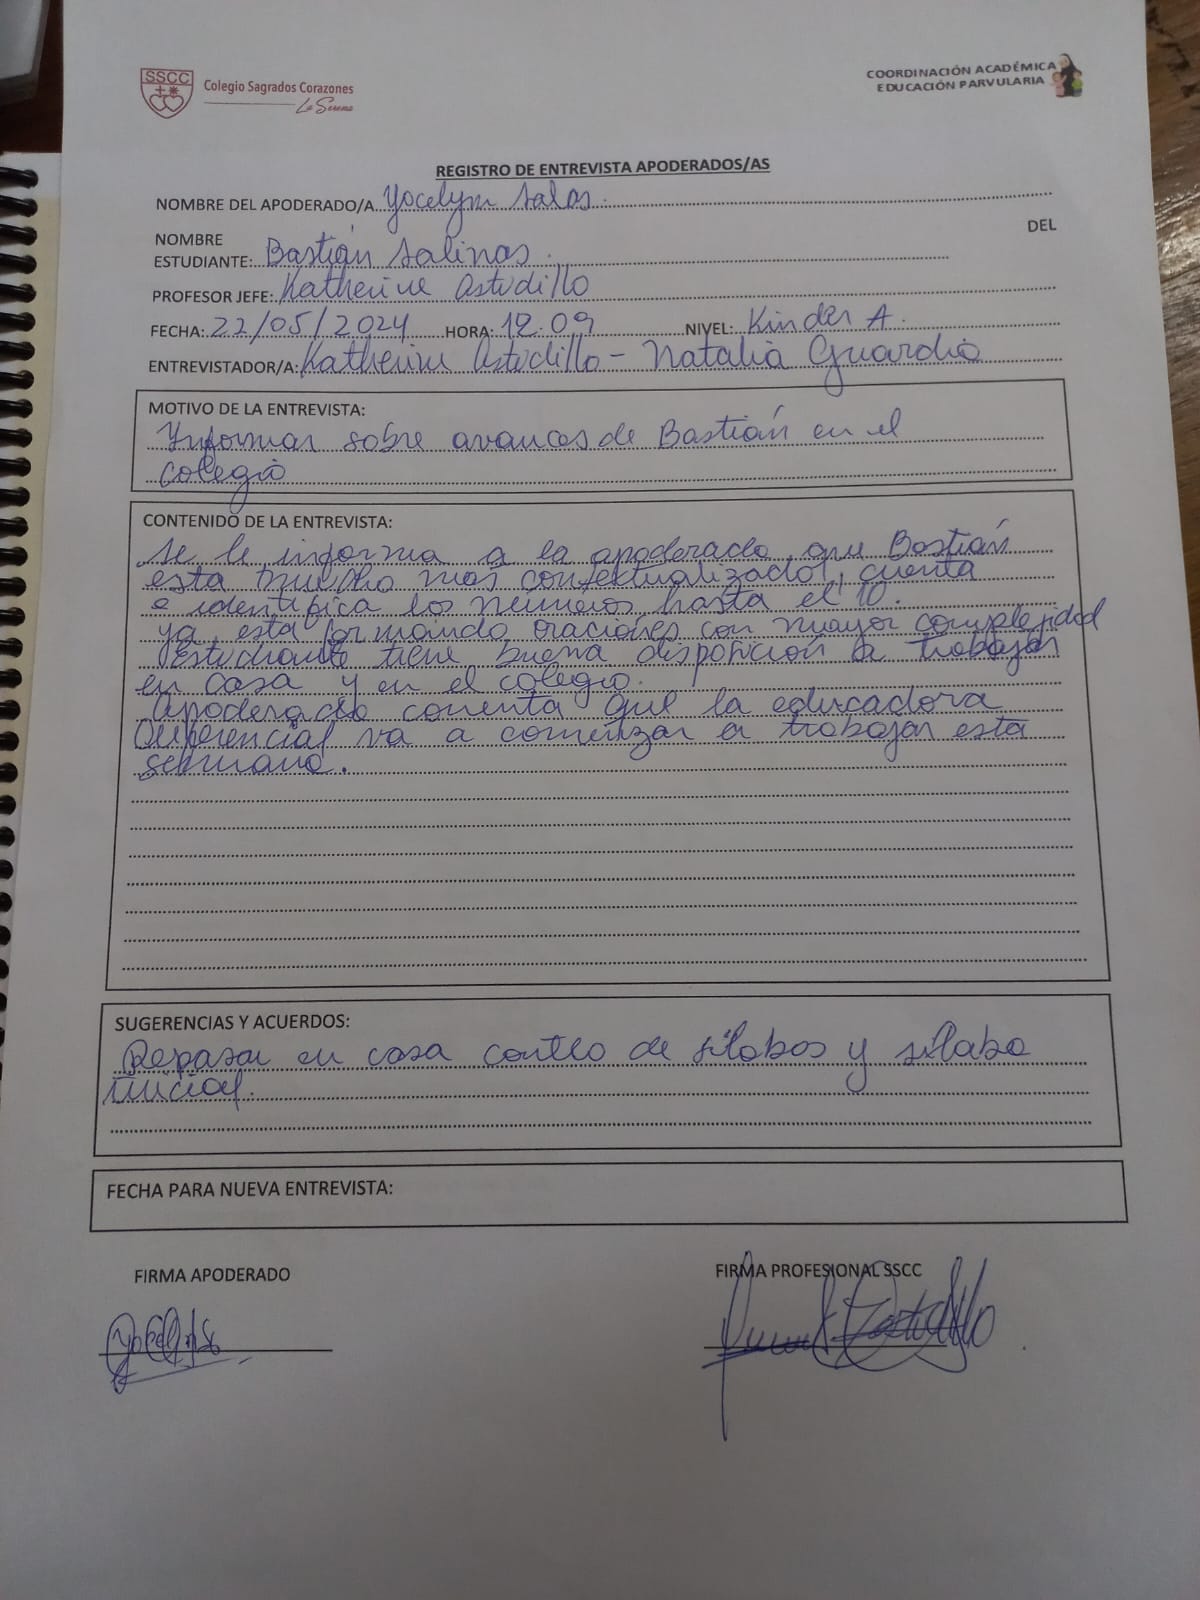 SSCC
Colegio Sagrados Corazones
La Serena
COORDINACIÓN ACADÉMICA
EDUCACIÓN PARVULARIA
REGISTRO DE ENTREVISTA APODERADOS/AS
NOMBRE DEL APODERADO/A Yocelyn Salas
NOMBRE DEL
ESTUDIANTE: Bastián Salinas
PROFESOR JEFE: Katherine Astudillo
FECHA: 22/05/2024 HORA: 12:09 NIVEL: Kinder A.
ENTREVISTADOR/A: Katherine Astudillo - Natalia Guardia
MOTIVO DE LA ENTREVISTA:
Informar sobre avances de Bastián en el
colegio
CONTENIDO DE LA ENTREVISTA:
Se le informa a la apoderada que Bastián
esta mucho mas contextualizado, cuenta
e identifica los números hasta el 10.
ya esta formando oraciones con mayor complejidad
Estudiante tiene buena disposición a trabajar
en casa y en el colegio.
Apoderada comenta que la educadora
Diferencial va a comenzar a trabajar esta
semana.
SUGERENCIAS Y ACUERDOS:
Repasar en casa conteo de sílabas y sílaba
inicial.
FECHA PARA NUEVA ENTREVISTA:
FIRMA APODERADO FIRMA PROFESIONAL SSCC